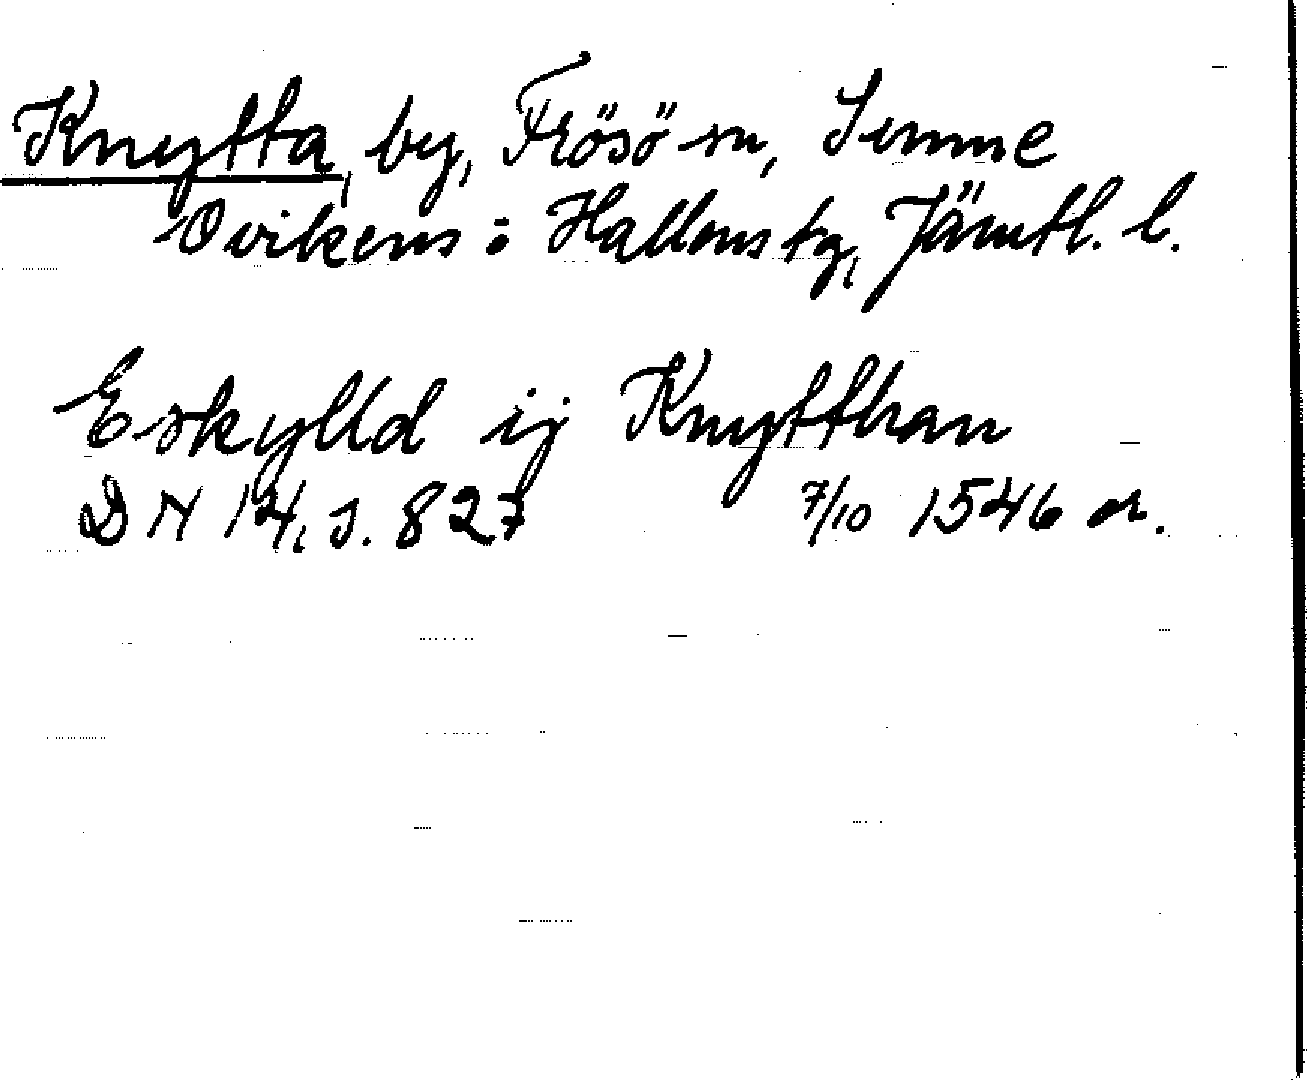 Knytta, by, Frösö sn, Sunne
Ovikens o Hallens tg, Jämtl. l.
Eskylld ij Knytthan
DN 14, s. 827 7/10 1546 or.